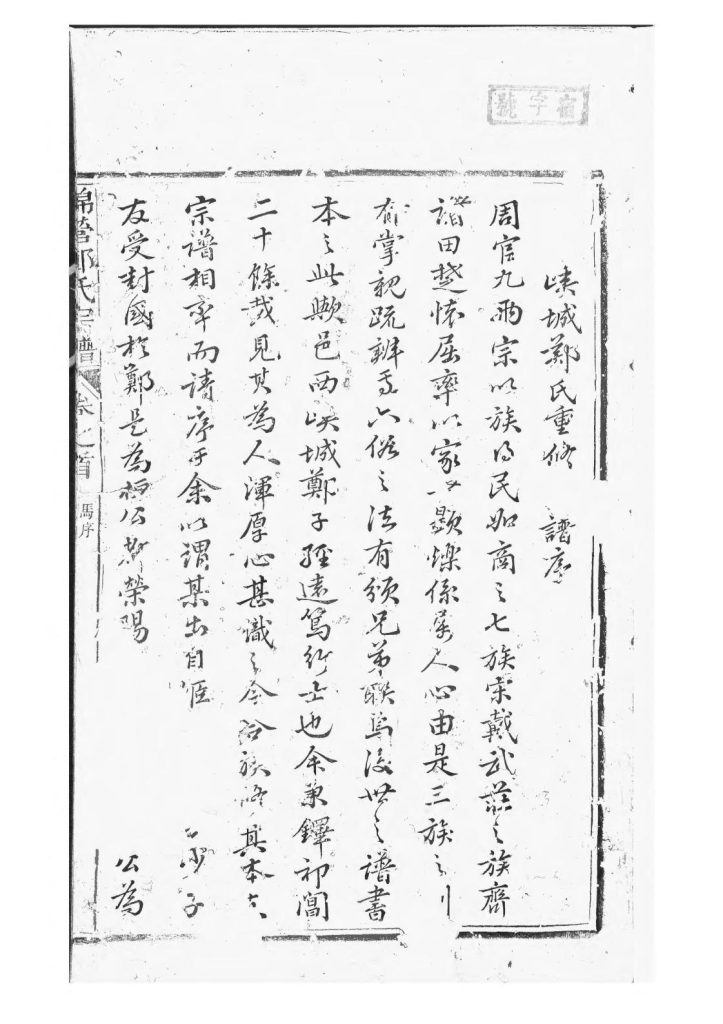 宿字號
峽城鄭氏重修 譜序
周官九兩宗以族得民如商之七族宋戴武莊之族齊
諸田楚懷屈率以家世顯爍係屬人心由是三族之
有掌親疏辨焉六俗之法有頒兄弟聯焉後世之譜書
本之此歟邑西峽城鄭子經遠篤行士也余秉鐸祁閶
二十餘哉見其為人渾厚心甚識之今合族修其本
宗譜相率而請序于余以謂某出自 子
友受封國於鄭是為桓公 滎陽 公為
錦營鄭氏宗譜 卷之首 馬序